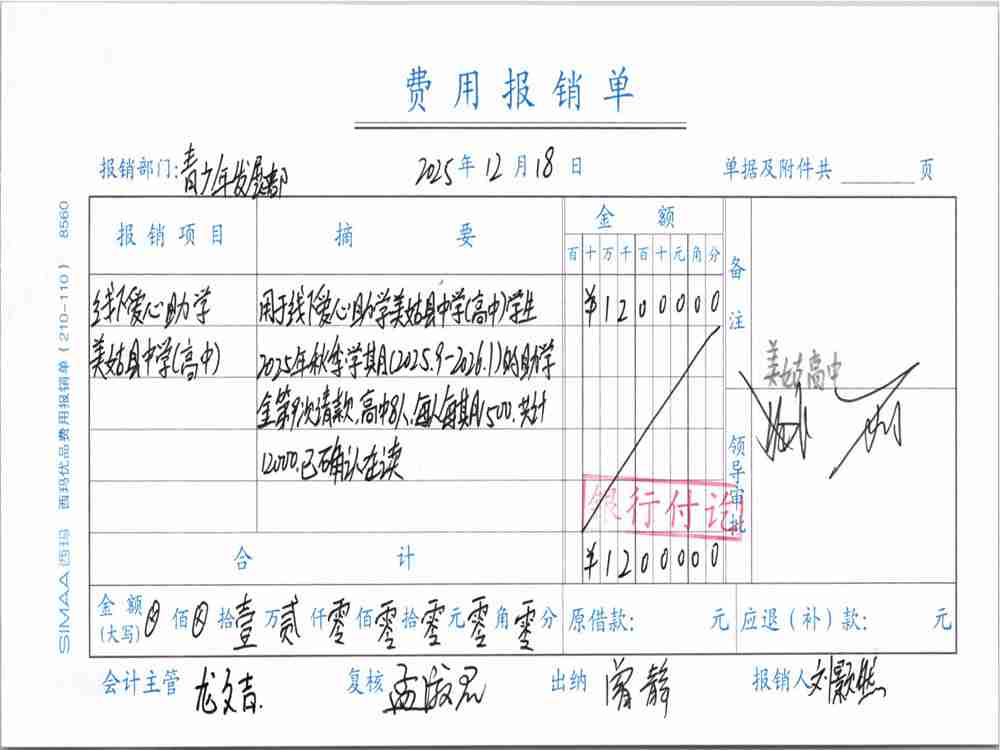 费用报销单
报销部门:青少年发展部 2025年12月18日 单据及附件共 页
报销项目 摘要 金额 备注
百十万千百十元角分
线下爱心助学 用于线下爱心助学美姑县中学(高中)学生 ¥1200000
美姑县中学(高中) 2025年秋季学期(2025.9-2026.1)的助学
美姑高中
金第9次请款,高中8人,每人每期1500,共计
12000.已确认在读
领导审批
银行付讫
合计 ¥1200000
金额(大写) ⊗佰⊗拾壹万贰仟零佰零拾零元零角零分 原借款: 元 应退(补)款: 元
会计主管 龙文吉 复核 孟淑君 出纳 曾静 报销人 刘颢然
SIMAA西玛 西玛优品费用报销单(210-110) 8560